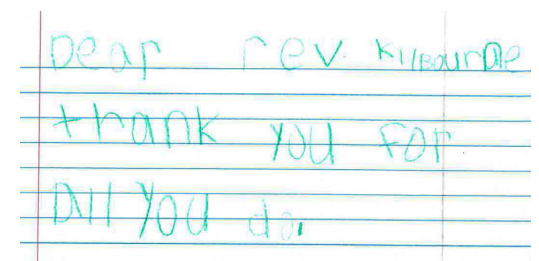 Dear rev. Kilbourne
thank you for
All you do.